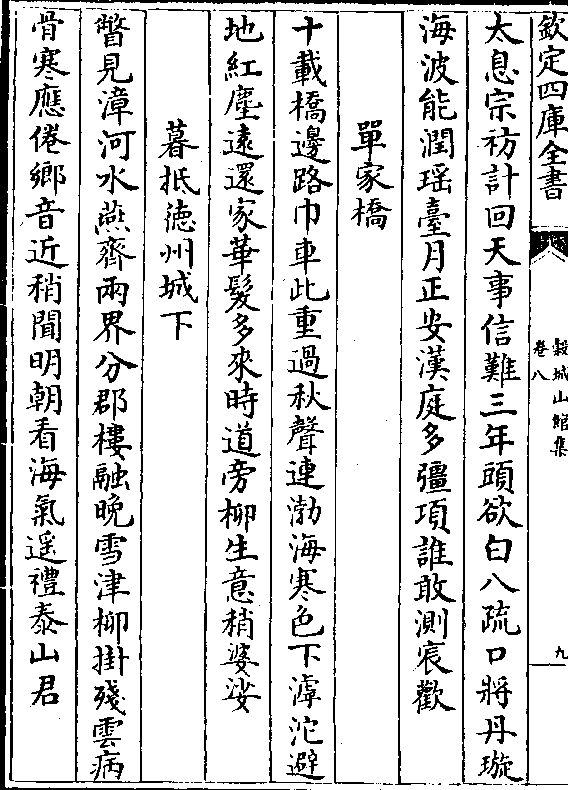 欽定四庫全書
穀城山館集
卷八
九
太息宗祊計回天事信難三年頭欲白八疏口將丹璇
海波能潤瑶臺月正安漢庭多彊項誰敢測宸歡
單家橋
十載橋邊路巾車此重過秋聲連渤海寒色下滹沱避
地紅塵遠還家華髮多來時道旁柳生意稍婆娑
暮抵德州城下
瞥見漳河水燕齊兩界分郡樓融晚雪津柳掛殘雲病
骨寒應倦鄉音近稍聞明朝看海氣遥禮泰山君